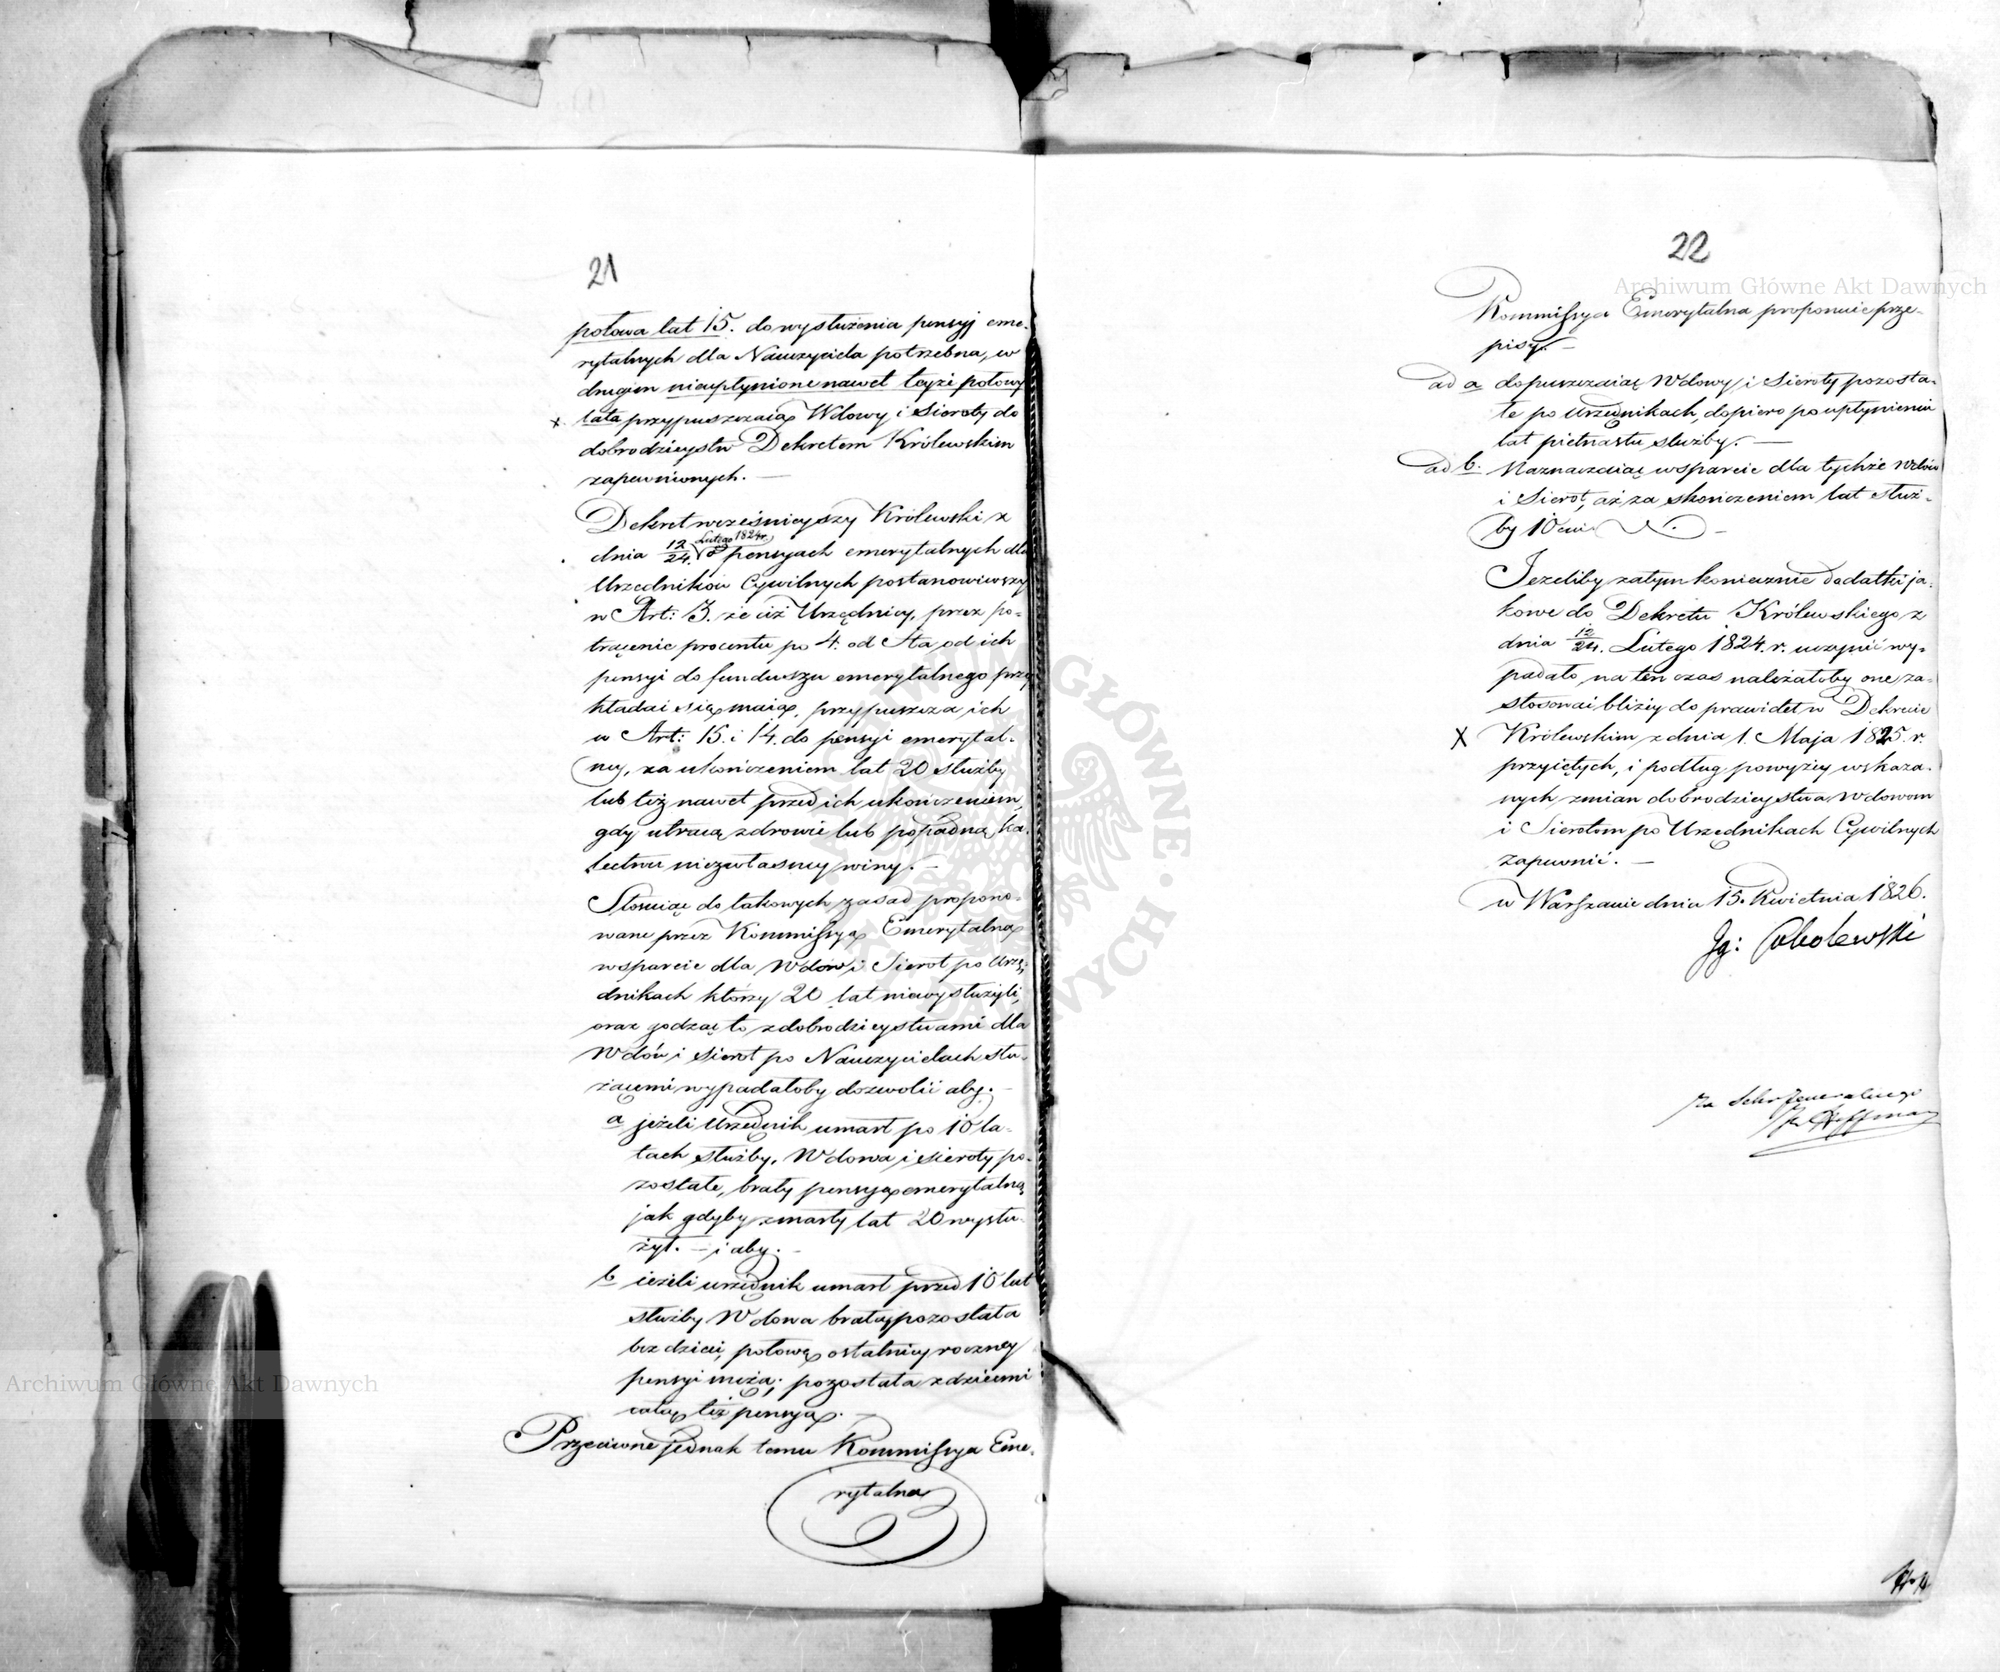 21
połowa lat 15. do wysłużenia pensyj eme-
rytalnych dla Nauczyciela potrzebna, w
drugim nieupłynione nawet teyże połowy
x lata przypuszczaią Wdowy i Sieroty do
dobrodzieystw Dekretem Królewskim
zapewnionych. —
Dekret wcześnieyszy Królewski z
dnia 12/24. Lutego 1824 r. o pensyach emerytalnych dla
Urzędników Cywilnych postanowiwszy
w Art: 3. że ciż Urzędnicy, przez po-
trącenie procentu po 4. od Sta od ich
pensyi do funduszu emerytalnego przy
kładać się maią, przypuszcza ich
w Art: 13. i 14. do pensyi emerytal-
ney, za ukończeniem lat 20 służby
lub też nawet przed ich ukończeniem,
gdy utracą zdrowie lub popadną ka-
lectwu niezwłasney winy. —
Stosuiąc do takowych zasad propono-
wane przez Kommissyą Emerytalną
wsparcie dla Wdów i Sierot po Urzę-
dnikach którzy 20 lat niewysłużyli,
oraz godząc to z dobrodzieystwami dla
Wdów i Sierot po Nauczycielach słu-
żącemi wypadałoby dozwolić aby. —
a jeżeli Urzędnik umarł po 10 la-
tach służby, Wdowa i Sieroty po-
zostałe, brały pensyą emerytalną
jak gdyby zmarły lat 20 wysłu-
żył. — i aby. —
b ieżeli urzędnik umarł przed 10 lat
służby Wdowa brała, pozostała
bez dzieci, połowę ostatniey roczney
pensyi męża; pozostała z dziećmi
całą też pensyą. —
Przeciwne jednak temu Kommissya Eme-
rytalna
22
Kommissya Emerytalna proponuie prze-
pisy. —
ad a dopuszczaiąc Wdowy i Sieroty pozosta-
łe po Urzędnikach, dopiero po upłynieniu
lat piętnastu służby. —
ad b. Naznaczaiąc wsparcie dla tychże Wdów
i Sierot, aż za skończeniem lat służ-
by 10ciu
Jeżeliby zatym koniecznie dodatki ja-
kowe do Dekretu Królewskiego z
dnia 12/24. Lutego 1824. r. uczynić wy-
padało, na ten czas należałoby one za-
stosować bliżey do prawideł w Dekrecie
X Królewskim z dnia 1. Maja 1825. r.
przyiętych, i podług powyżey wskaza-
nych zmian dobrodzieystwa Wdowom
i Sierotom po Urzędnikach Cywilnych
zapewnić. —
w Warszawie dnia 15. Kwietnia 1826.
Jg: Sobolewski
za Sekr Jeneralnego
Hoffman
Archiwum Główne Akt Dawnych
Archiwum Główne Akt Dawnych